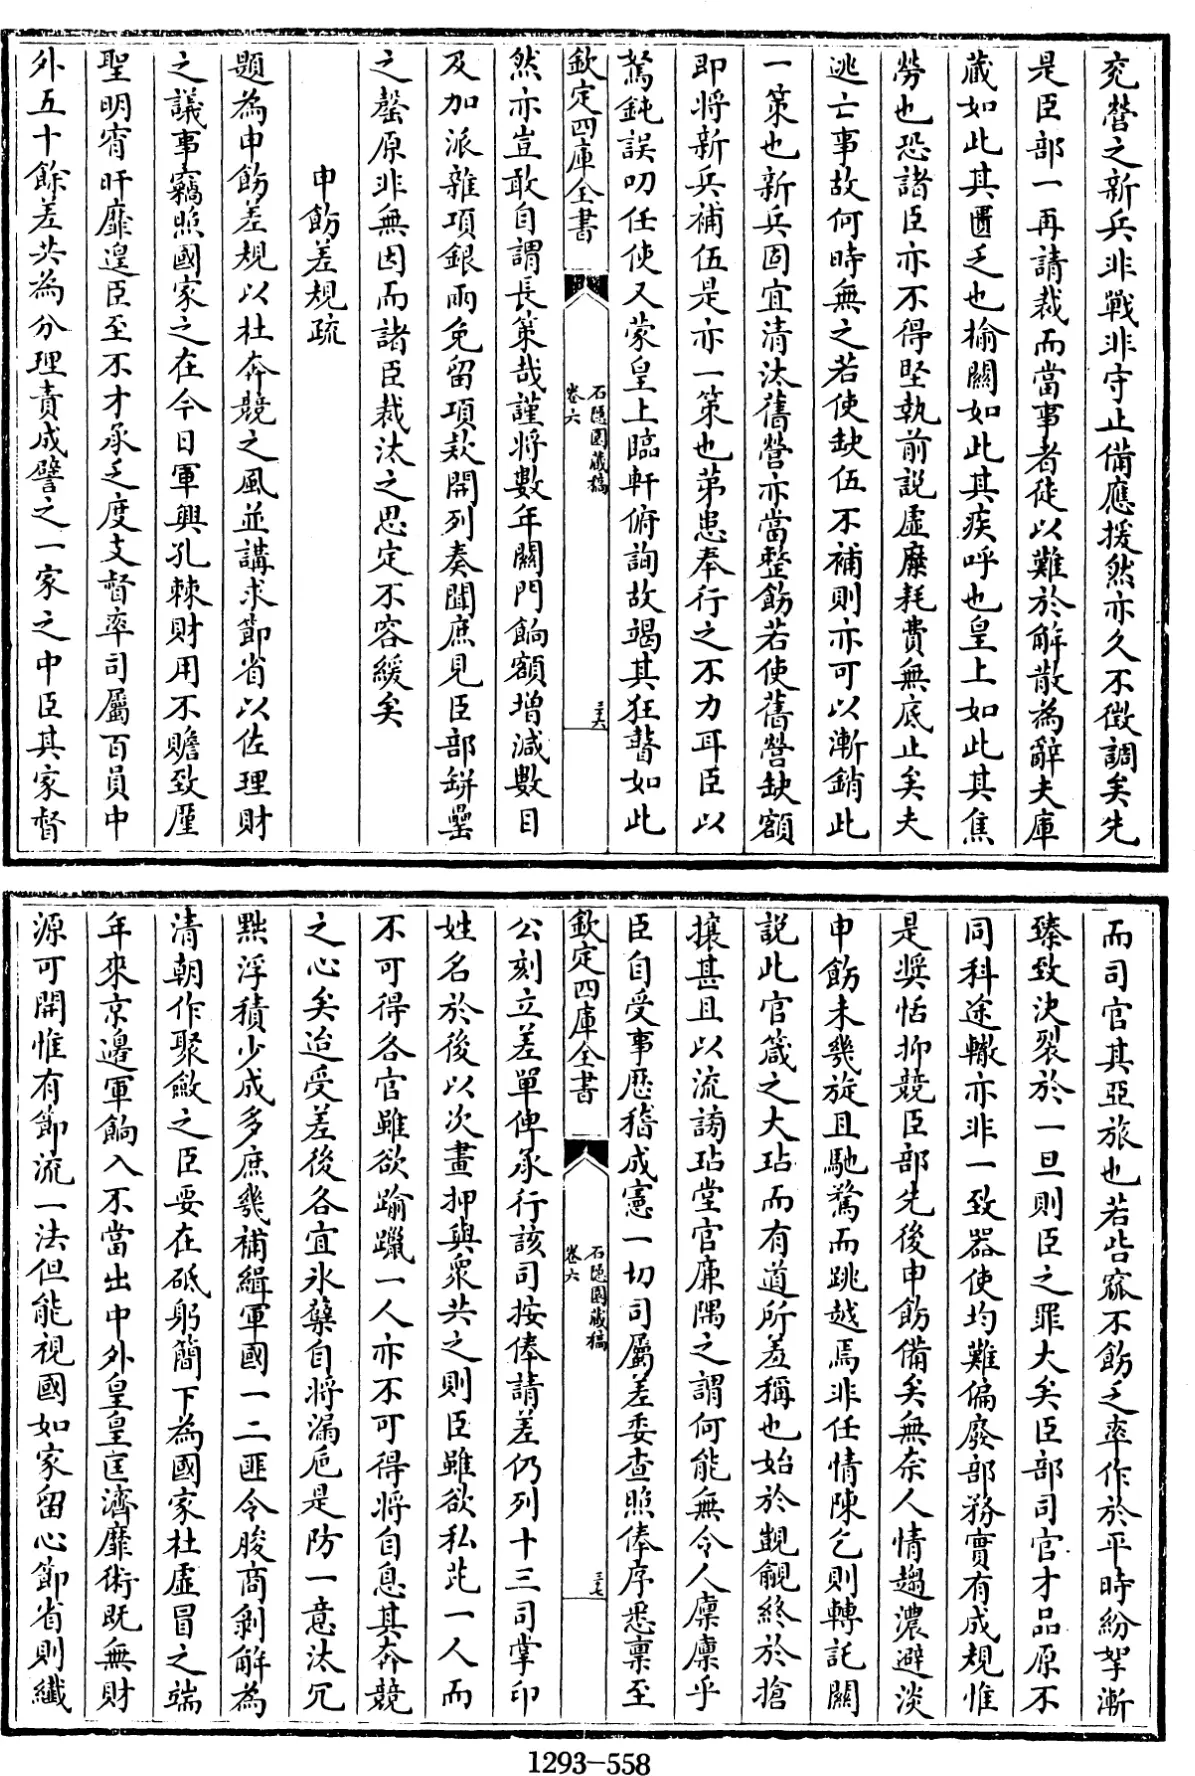 兖營之新兵非戰非守止備應援然亦久不徴調矣先
是臣部一再請裁而當事者徒以難於解散為辭夫庫
藏如此其匱乏也榆關如此其疾呼也皇上如此其焦
勞也恐諸臣亦不得堅執前説虛糜耗費無底止矣夫
逃亡事故何時無之若使缺伍不補則亦可以漸銷此
一策也新兵固宜清汰舊營亦當整飭若使舊營缺額
即將新兵補伍是亦一策也苐患奉行之不力耳臣以
駑鈍誤叨任使又蒙皇上臨軒俯詢故竭其狂瞽如此
欽定四庫全書
石隱園藏稿
卷六
三十六
然亦豈敢自謂長策哉謹將數年關門餉額增減數目
及加派雜項銀兩免留項款開列奏聞庶見臣部缾罍
之罄原非無因而諸臣裁汰之思定不容緩矣
申飭差規疏
題為申飭差規以杜奔競之風並講求節省以佐理財
之議事竊照國家之在今日軍興孔棘財用不贍致厪
聖明宵旰靡遑臣至不才承乏度支督率司屬百員中
外五十餘差共為分理責成譬之一家之中臣其家督
而司官其亞旅也若呰窳不飭乏率作於平時紛拏漸
臻致決裂於一旦則臣之罪大矣臣部司官才品原不
同科途轍亦非一致器使均難偏廢部務實有成規惟
是奬恬抑競臣部先後申飭備矣無奈人情趨濃避淡
申飭未幾旋且馳騖而跳越焉非任情陳乞則轉託關
説此官箴之大玷而有道所羞稱也始於覬覦終於搶
攘甚且以流謗玷堂官廉隅之謂何能無令人凜凜乎
臣自受事歴稽成憲一切司屬差委查照俸序悉稟至
欽定四庫全書
石隱園藏稿
卷六
三十七
公刻立差單俾承行該司按俸請差仍列十三司掌印
姓名於後以次畫押與衆共之則臣雖欲私庇一人而
不可得各官雖欲踰躐一人亦不可得將自息其奔競
之心矣迨受差後各宜氷蘖自將漏巵是防一意汰冗
㸃浮積少成多庶幾補緝軍國一二匪令朘商剝解為
清朝作聚斂之臣要在砥躬簡下為國家杜虛冒之端
年來京邊軍餉入不當出中外皇皇匡濟靡術既無財
源可開惟有節流一法但能視國如家留心節省則纎
1293-558